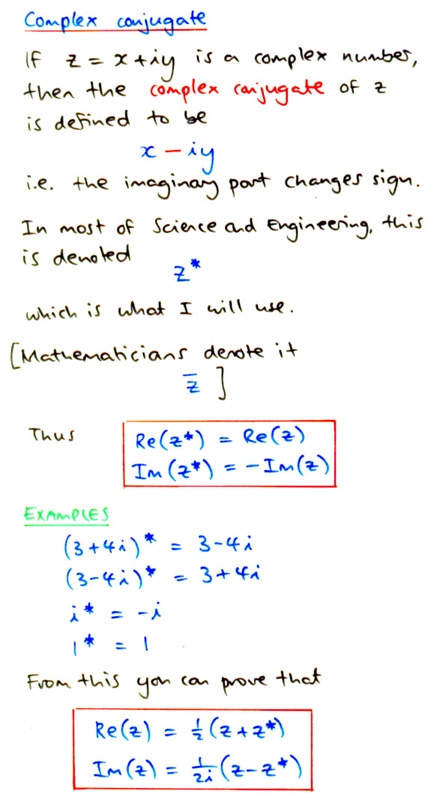 Complex conjugate
If z = x + iy is a complex number,
then the complex conjugate of z
is defined to be
x − iy
i.e. the imaginary part changes sign.
In most of Science and Engineering, this
is denoted
z*
which is what I will use.
[Mathematicians denote it
z̅ ]
Thus
Re(z*) = Re(z)
Im(z*) = −Im(z)
EXAMPLES
(3+4i)* = 3−4i
(3−4i)* = 3+4i
i* = −i
1* = 1
From this you can prove that
Re(z) = ½(z+z*)
Im(z) = 1/2i (z−z*)